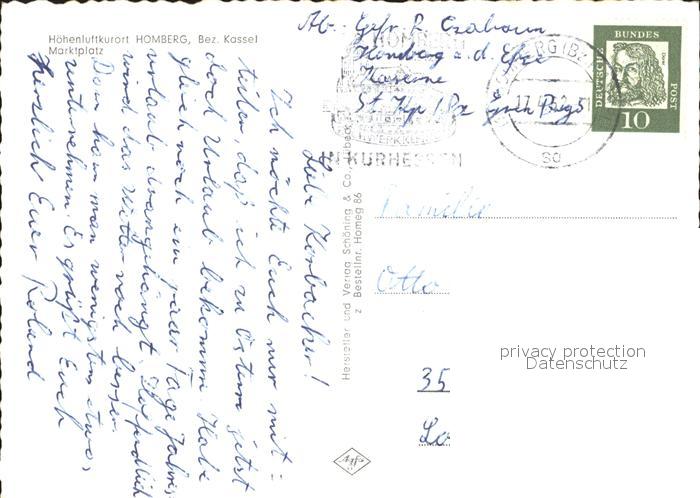 Höhenluftkurort HOMBERG, Bez. Kassel
Marktplatz
Abs. Gefr. R.
Homberg a. d. Efze
Kaserne
BERG (BZ
IN KURHESSEN
DEUTSCHE BUNDESPOST
10
Liebe Korbacher!
Ich möchte Euch nur mit=
teilen, daß ich zu Ostern jetzt
doch Urlaub bekomme. Habe
gleich noch ein paar Tage Jahres-
urlaub drangehängt. Hoffendlich
wird das Wetter noch besser.
Dann kann man wenigstens etwas
unternehmen. Es grüßt Euch
herzlich Euer Roland
Hersteller und Verlag Schöning & Co., Lübeck
z Bestellnr. Homeg 86
Familie
Otto
35
privacy protection
Datenschutz
Agfa